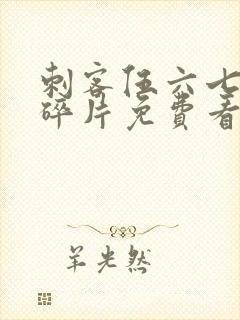 刺客伍六七
碎片免费看
羊光然